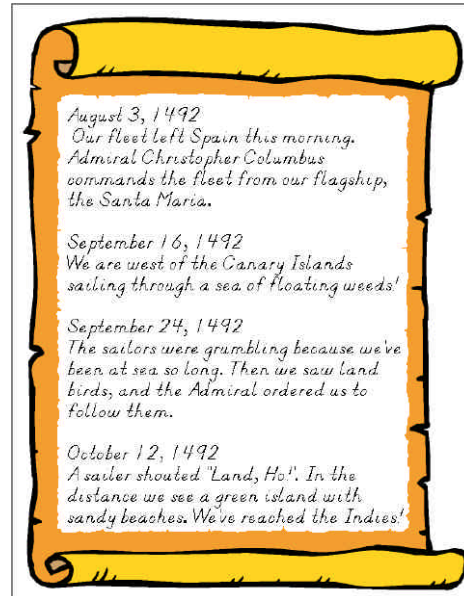 August 3, 1492
Our fleet left Spain this morning.
Admiral Christopher Columbus
commands the fleet from our flagship,
the Santa Maria.
September 16, 1492
We are west of the Canary Islands
sailing through a sea of floating weeds!
September 24, 1492
The sailors were grumbling because we've
been at sea so long. Then we saw land
birds, and the Admiral ordered us to
follow them.
October 12, 1492
A sailer shouted "Land, Ho!". In the
distance we see a green island with
sandy beaches. We've reached the Indies!